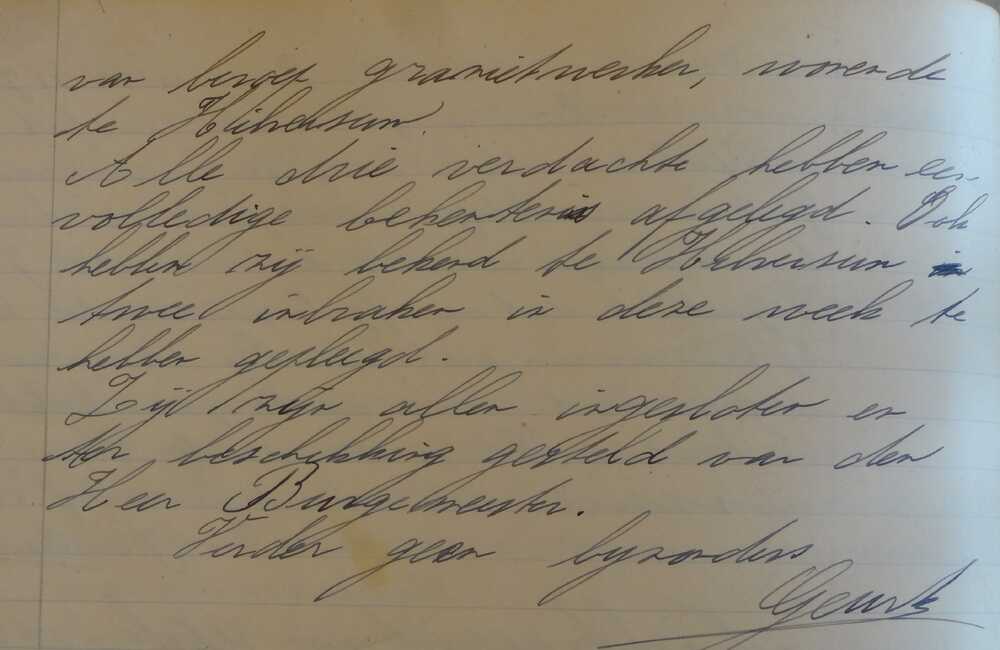 van beroep granietwerker, wonende
te Hilversum.
Alle drie verdachte hebben een
volledige bekentenis afgelegd. Ook
hebben zij bekend te Hilversum
twee inbraken in deze week te
hebben gepleegd.
Zij zijn allen ingesloten en
ter beschikking gesteld van den
Heer Burgemeester.
Verder geen byzonders